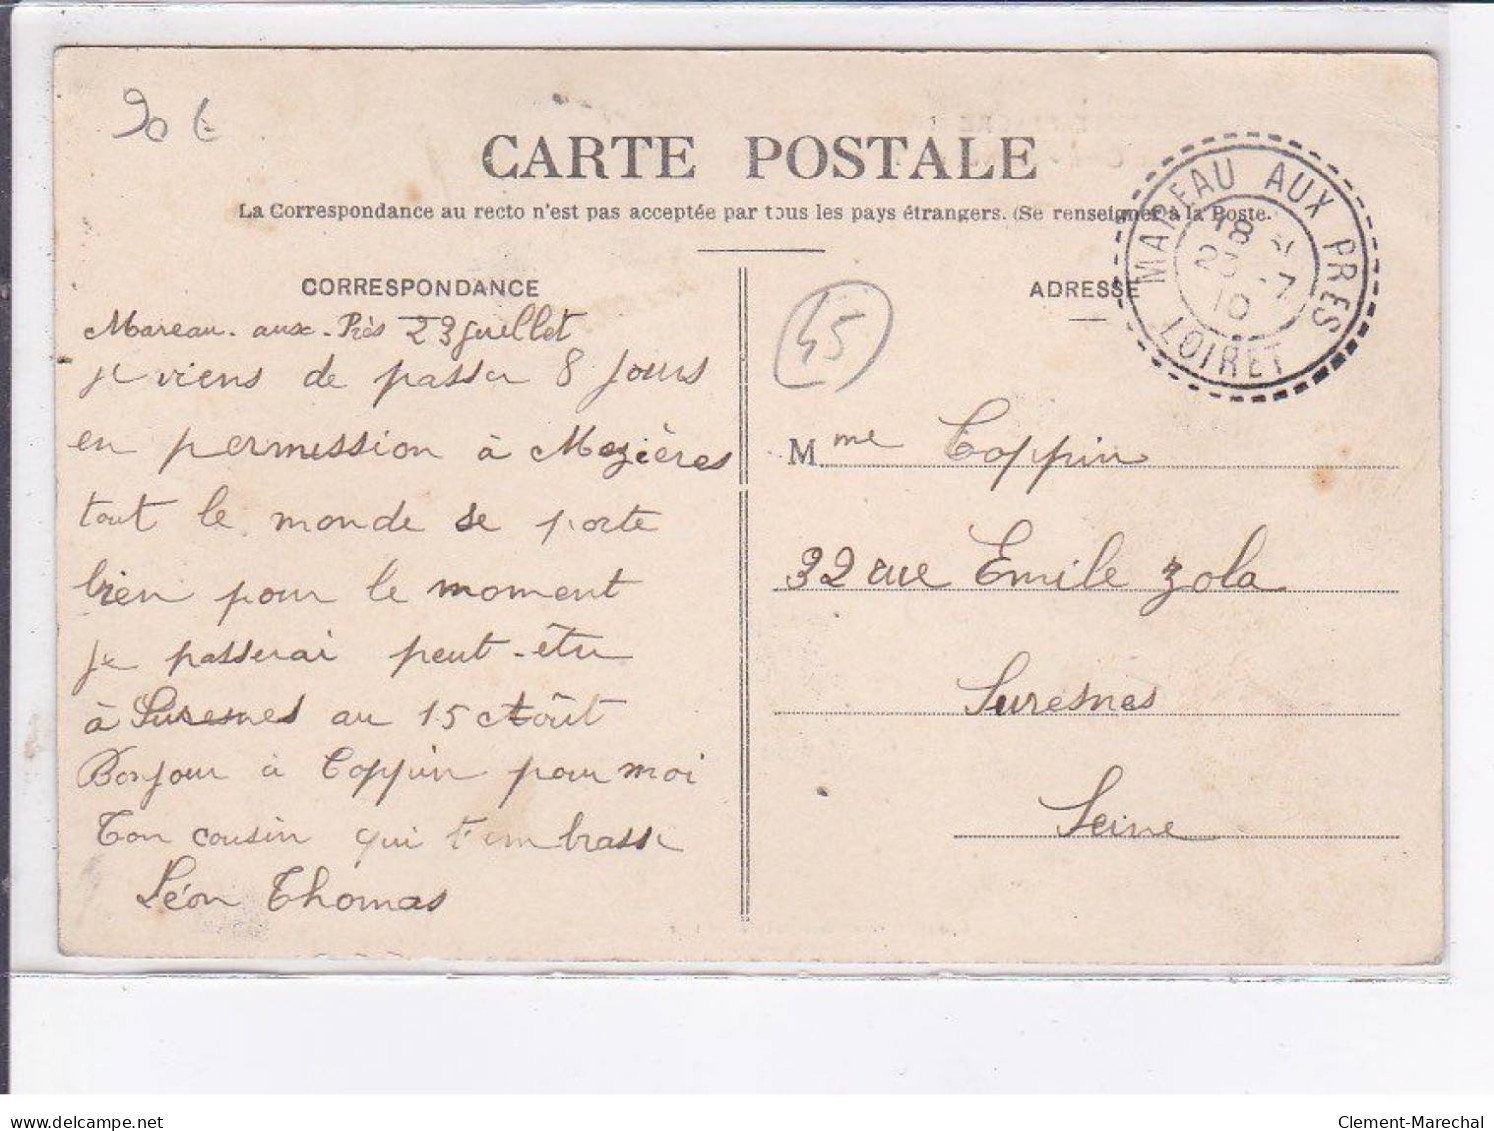 90 €
CARTE POSTALE
La Correspondance au recto n'est pas acceptée par tous les pays étrangers. (Se renseigner à la Poste.
MAREAU AUX PRES
18
23 -7
10
LOIRET
CORRESPONDANCE
Mareau-aux-Près 23 Juillet
je viens de passer 8 jours
en permission à Mezières
tout le monde se porte
bien pour le moment
Je passerai peut-être
à Suresnes au 15 Aôut
Bonjour à Coppin pour moi
Ton cousin qui t'embrasse
Léon Thomas
45
ADRESSE
Mme Coppin
32 rue Emile Zola
Suresnes
Seine
delcampe.net
Clement-Marechal